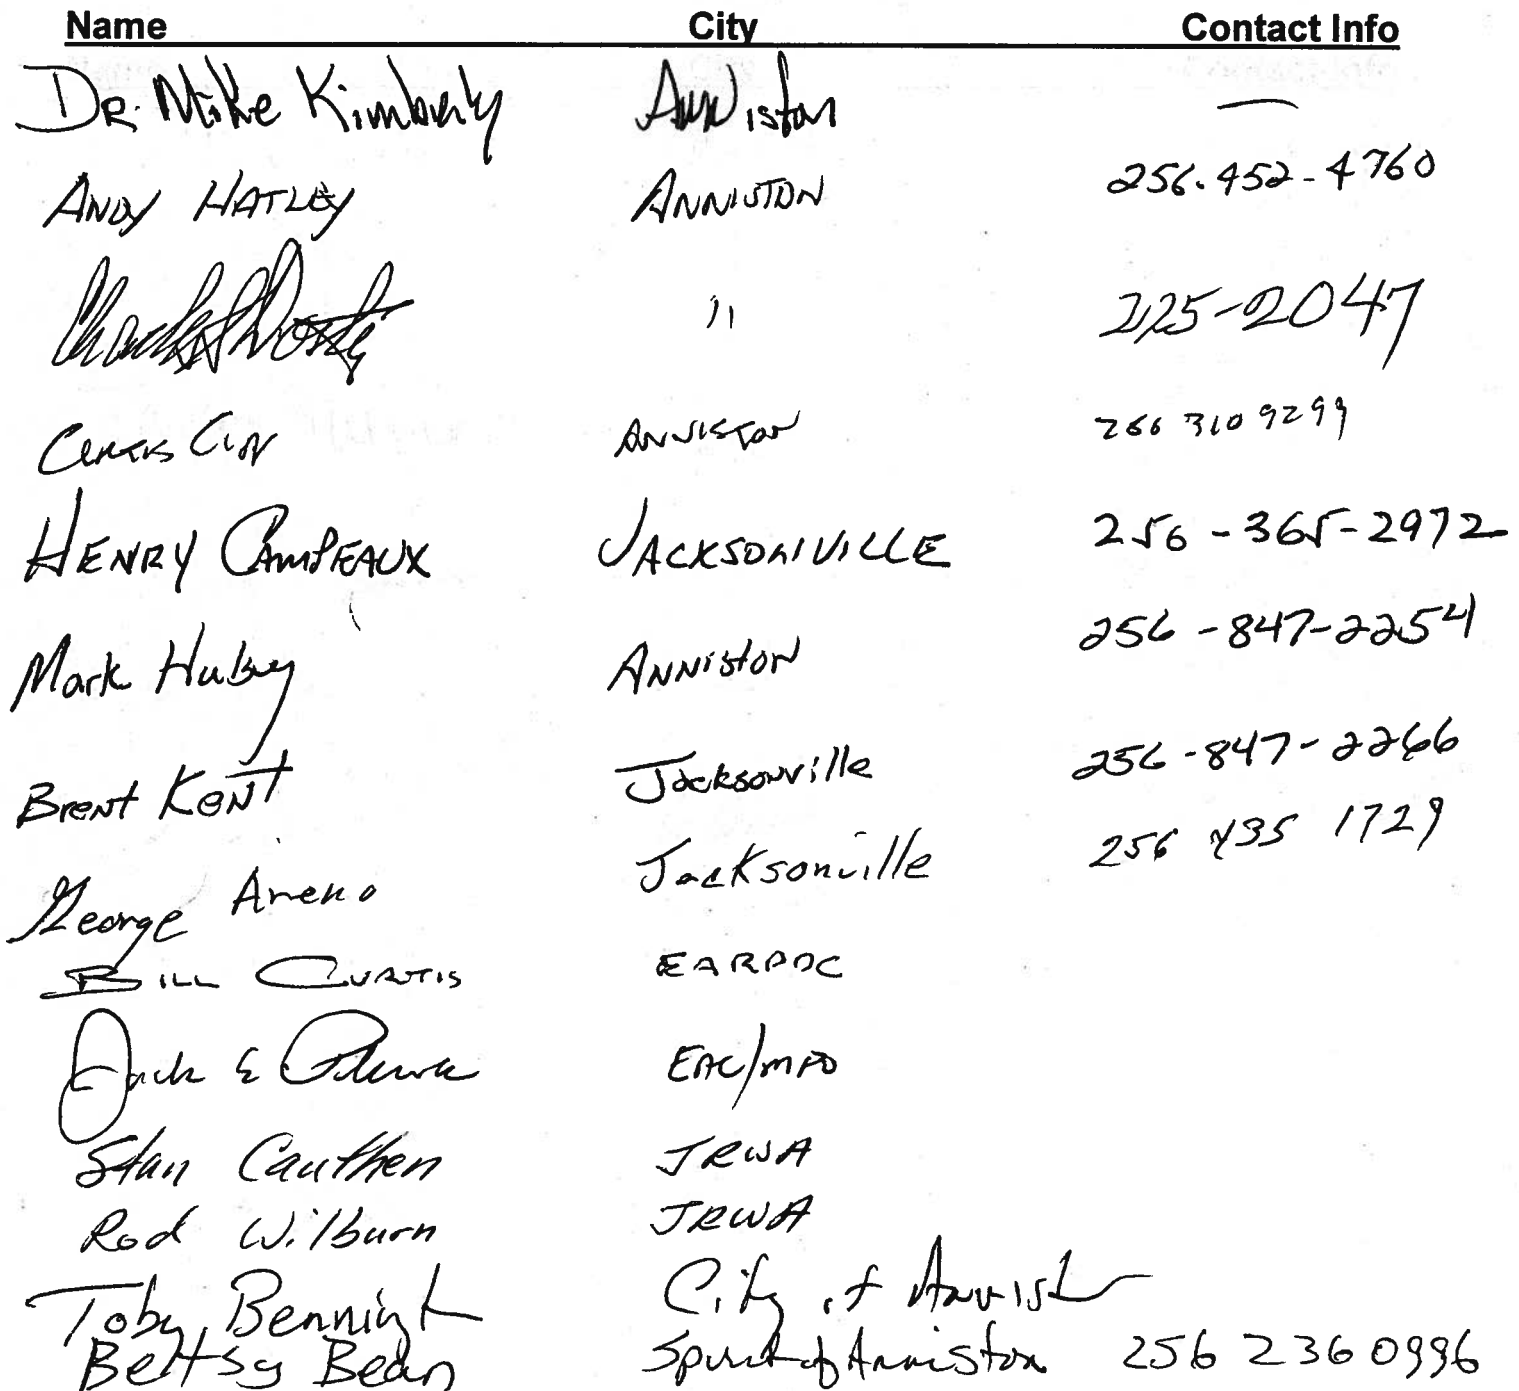 Name City Contact Info
Dr. Mike Kimberly Anniston —
ANDY HATLEY ANNISTON 256.452-4760
" 225-2047
Curtis ANNISTON 256 310 9299
HENRY CAMPEAUX JACKSONVILLE 256-365-2972
Mark Hubey Anniston 256-847-2254
Brent Kent Jacksonville 256-847-2266
George Areno Jacksonville 256 435 1729
BILL CURTIS EARPDC
Jack E EAC/MPO
Stan Cauthen JRWA
Rod Wilburn JRWA
Toby Bennigt City of Annist
Bettsy Bean Spirit of Anniston 256 236 0996